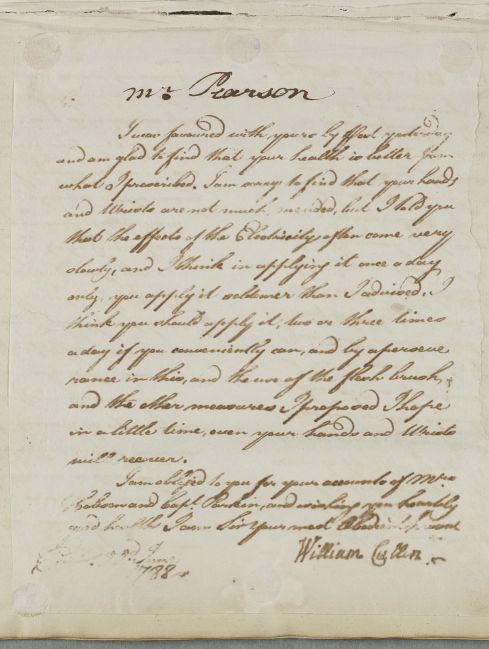 Mr. Pearson
I was favoured with yours by Post yesterday
and am glad to find that your health is better from
what I prescribed. I am sorry to find that your hands
and Wrists are not much mended, but I told you
that the effects of the Electricity often come very
slowly, and I think in applying it once a day
only, you apply it seldomer than I advised. I
think you should apply it, two or three times
a day if you conveniently can, and by a perseve
rance in this, and the use of the flesh brush,
and the other measures I proposed I hope
in a little time, even your hands and Wrists
will recover.
I am obliged to you for your accounts of Mrs
and Capt. Parkin, and wishing you heartily
good health I am Sir Your most Obedient Servant
William Cullen
June
1788